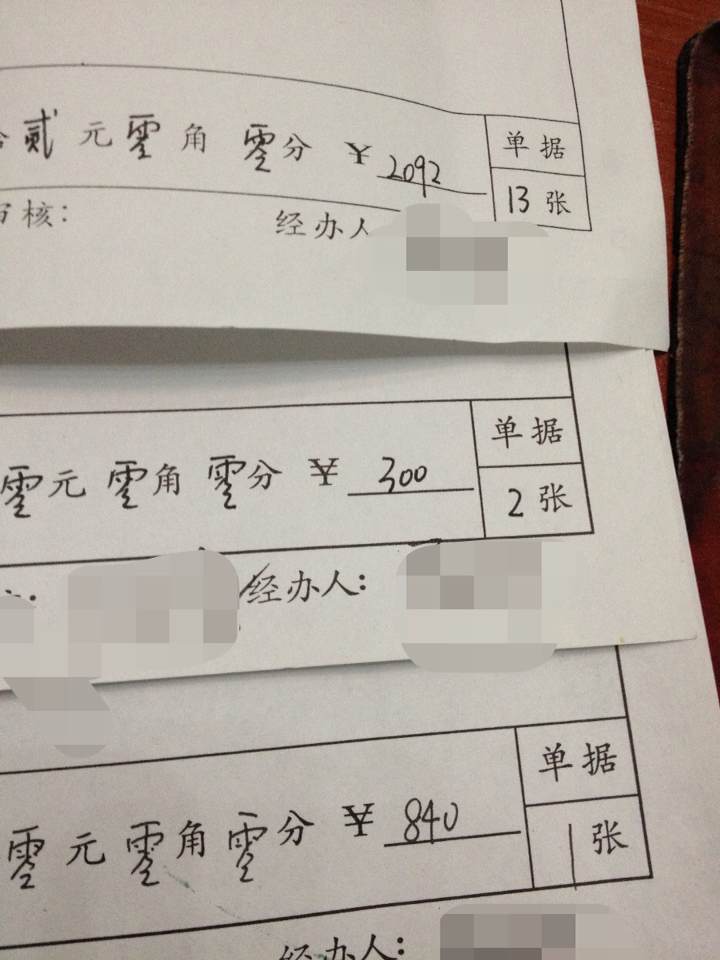 贰元零角零分 ¥2092 单据
13张
审核: 经办人
零元零角零分 ¥300 单据
2张
经办人:
零元零角零分 ¥840 单据
1张
经办人: